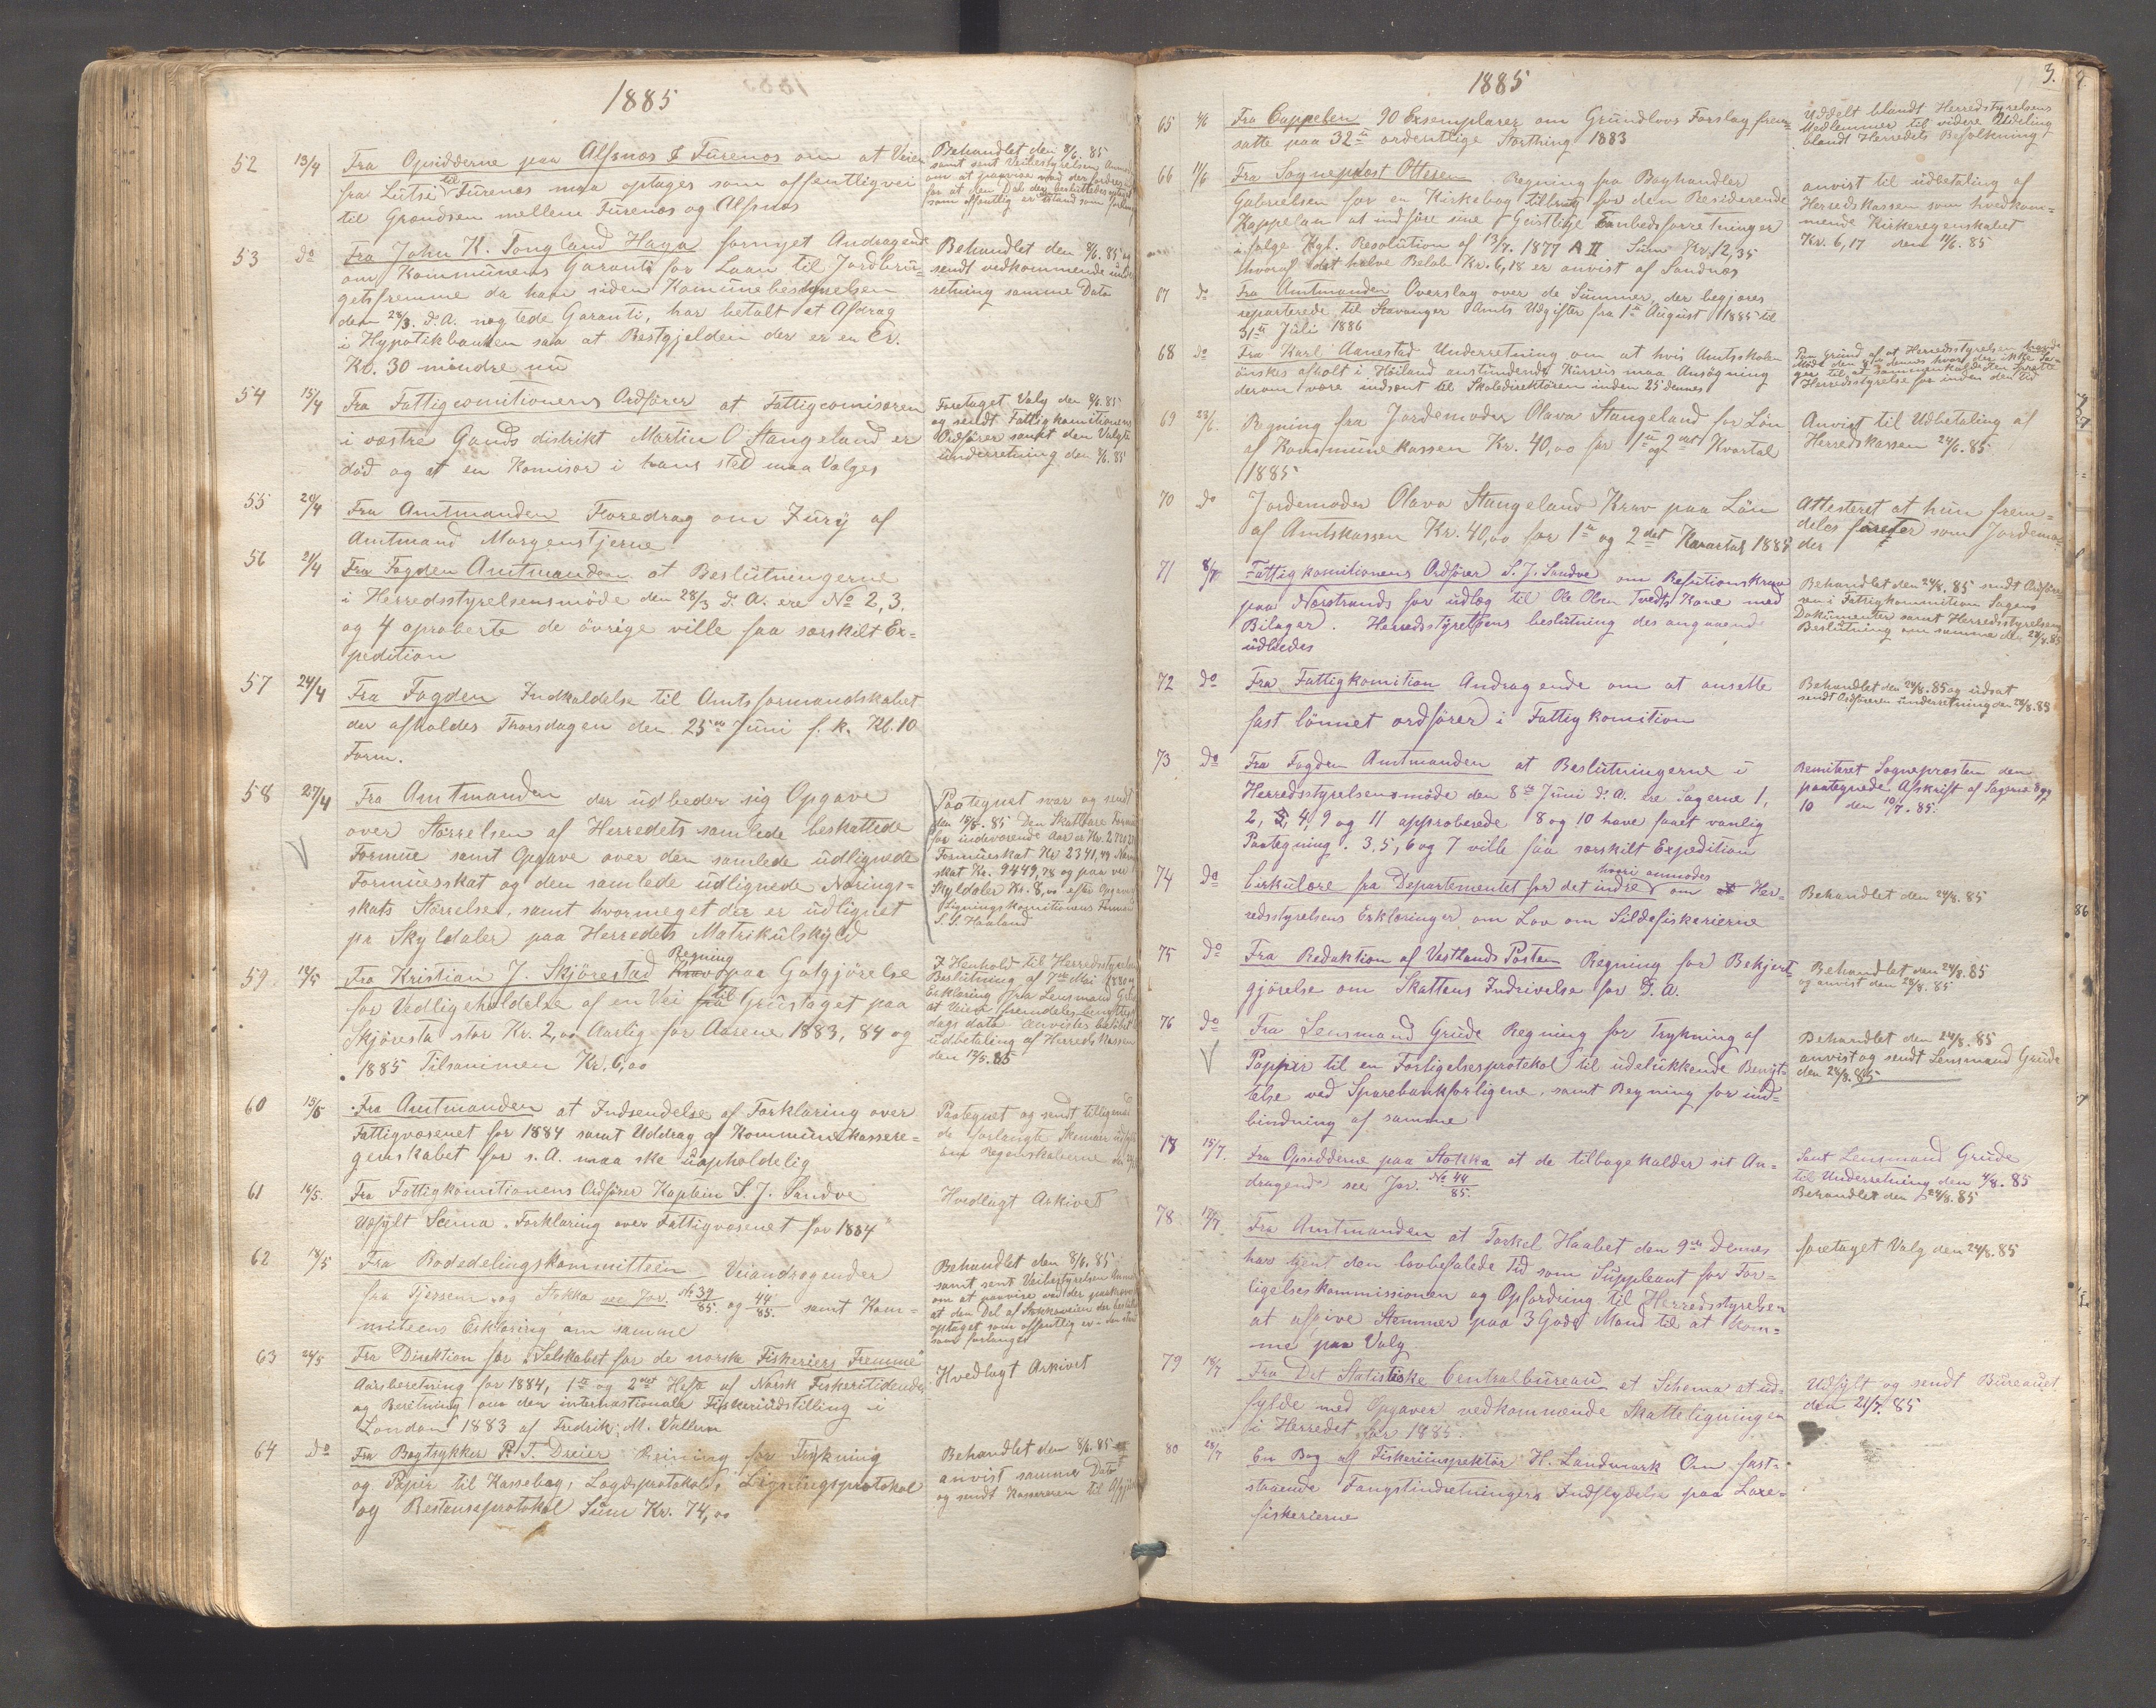 1885
52 13/4 Fra Opsidderne paa Alfsnæs & Furenes om at Veien
fra Lutsi til Furenes maa optages som offentligvei
til Grændsen mellem Furenæs og Alfsnæs
Behandlet den 8/6. 85
samt sent Veibestyrelsen
som offentlig er istand som
53 do Fra John K. Tongland Haga fornyet Andragende
om Kommunens Garanti for Laan til Jordbru-
getsfremme da han siden Komunebestyrelsen
den 28/3. d. A. nægtede Garanti, har betalt et Afdrag
i Hypotikbanken saa at Restgjelden der er en Cr.
Kr. 30 mindre nu
Behandlet den 8/6. 85 og
sendt vedkommende under
retning samme Dato
54 15/4 Fra Fattigcomitionens Ordfører at Fattigcomisæren
i vestre Gands distrikt Martin O Stangeland er
død og at en Komisær i hans sted maa Vælges
Foretaget Valg den 8/6. 85
og sendt Fattigkomitionens
Ordfører samt den Valgte
underretning den 9/6. 85
55 20/4 Fra Amtmanden Foredrag om Jury af
Amtmand Morgenstjerne
56 21/4 Fra Fogden Amtmanden at Beslutningerne
i Herredsstyrelsensmøde den 28/3 d. A. ere No 2, 3,
og 4 aproberte de øvrige ville faa særskilt Ex-
pedition
57 24/4 Fra Fogden Indkaldelse til Amtsformandskabet
der afholdes Thorsdagen den 25de Juni f. k. Kl. 10
Form.
58 27/4 Fra Amtmanden der udbeder sig Opgave
over Størrelsen af Herredets samlede beskattede
Formue samt Opgave over den samlede udlignede
Formuesskat og den samlede udlignede Nærings-
skats Størrelse, samt hvormeget der er udlignet
pr. Skyldaler paa Herredets Matrikulskyld
Paategnet svar og sendt
den 18/5. 85 Den Skattbare
for indeværende Aar er Kr.
Formueskat Kr 2341,49
skat Kr. 9449,78 og paa ver
Skyldaler Kr. 8,00 efter Opgave
Ligningskomitionens Forman
S. S. Haaland
59 12/5 Fra Kristian J. Skjørestad Regning paa Godgjørelse
for Vedligeholdelse af en Vei til Grustaget paa
Skjørestad stor Kr. 2,00 Aarlig for Aarene 1883, 84 og
1885 Tilsammen Kr. 6,00
I Henhold til Herredsstyrelsens
Beslutning af 7de Mai 1880
Erklæring fra Lensmand
at Veien fremdeles benyttes
dags dato anvistes beløbet
udbetaling af Herredskassen
den 12/5. 85
60 13/5 Fra Amtmanden at Indsendelse af Forklaring over
Fattigvæsenet for 1884 samt Uddrag af Kommunekassere-
genskabet for s. A. maa ske uopholdelig
Paategnet og sendt tilligemed
de forlangte Skemaer
om regenskaberne
61 16/5. Fra Fattigkomitionens Ordfører Kaptein S. J. Sandve
Udfylt Scema. Forklaring over Fattigvæsenet for 1884
Hvedlagt Arkivet
62 18/5 Fra Rodedelingskommitteen Veiandragender
fra Tjersem og Stokka see Jor. No 39/85. og 44/85. samt Kom-
miteens Erklæring om samme
Behandlet den 8/6. 85
samt sent Veibestyrelsen
om at paavise ved der
at den Del af Stokkaveien der
optaget som offentlig er
som forlanget
63 24/5 Fra Direktion for "Selskabet for de norske Fiskeriers Fremme"
Aarsberetning for 1884, 1te og 2det Hefte af Norsk Fiskeritidende
og Beretning om den internastionale Fiskeriudstilling i
London 1883 af Fredrik M. Wallem
Hvedlagt Arkivet
64 do Fra Bogtrykker P. T. Dreier Reining for Trykning
og Papir til Kassebog, Lagdsprotokol, Ligningsprotokol
og Restanseprotokol Sum Kr. 74,00
Behandlet den 8/6. 85
anvist samme Dato
og sendt Kassereren til
1885
3.
65 Fra Cappelen 90 Exsemplarer om Grundlovs Forslag frem-
satte paa 32te ordentlige Storthing 1883
Uddelt blandt Herredstyrelsens
Medlemmer til videre Uddeling
blandt Herredets Befolkning
66 11/6 Fra Sogneprest Ottesen Regning fra Boghandler
Gabrielsen for en Kirkebog tillbrug for den Residerende
Kappelan at indføre sine Geistlige Embedsforretninger
ifølge Kgl. Resolution af 13/7. 1877 A II Sum Kr. 12,35
hvoraf det halve Beløb Kr. 6,18 er anvist af Sandnæs
anvist til udbetaling af
Herredskassen som hvedkom-
mende Kirkeregenskabet
Kr. 6,17 den 11/6. 85
67 do Fra Amtmanden Overslag over de Summer, der begjæres
reparterede til Stavanger Amts Udgifter fra 1te August 1885 til
31te Juli 1886
68 do Fra Karl Aanestad Underretning om at hvis Amtsskolen
ønskes afholt i Høiland anstundende Kursus maa Ansøgning
derom være indsent til Skoledirektøren inden 25 dennes
Paa grund af at Herredsstyrelsen havde
Møde den 8de dennes hvor der ikke
Herredsstyrelse før inden den Tid
69 23/6. Regning fra Jordemoder Olava Stangeland for Løn
af Kommunekassen Kr. 40,00 for 1te og 2det Kvartal
1885
Anvist til Udbetaling af
Herredskassen 24/6. 85
70 do Jordemoder Olava Stangeland Krav paa Løn
af Amtskassen Kr. 40,00 for 1te og 2det Kvartal 1885
Attesteret at hun frem-
deles fureter som Jordemo-
der
71 8/7 Fattigkomitionens Ordfører S. J. Sandve om Refutionskrav
paa Nærstrands for udlæg til Ole Olsen Tvedts Kone med
Bilager. Herredsstyrelsens beslutning desangaaend
udbedes
Behandlet den 24/8. 85 sendt Ordføre-
ren i Fattigkommition Sagens
Dokumenter samt Herredsstyrelsens
Beslutning om samme den 28/8. 85
72 do Fra Fattigkomition Andragende om at ansette
fast lønnet ordfører i Fattigkomition
Behandlet den 24/8. 85 og udsat
sendt Ordføreren underretning den 28/8. 85
73 do Fra Fogden Amtmanden at Beslutningerne i
Herredsstyrelsensmøde den 8de Juni d. A. ere Sagerne 1,
2, 4, 9 og 11 approberede 8 og 10 have faaet vanlig
Paategning. 3, 5, 6 og 7 ville faa særskilt Expedition
Remiteret Sognepresten den
paategnede Afskrift af Sagerne 8 og
10 den 10/7. 85.
74 do Cirkulære fra Departementet for det indre hvori anmodes om Her-
redsstyrelsens Erklæringer om Lov om Sildefiskerierne
Behandlet den 24/8. 85
75 do Fra Redaktion af Vestlands Posten Regning for Bekjent-
gjørelse om Skattens Indrivelse for d. A.
Behandlet den 24/8. 85
og anvist den 28/8. 85
76 do Fra Lensmand Grude Regning for Trykning af
Pappir til en Forligelsesprotokol til udelukkende Benyt-
telse ved Sparebankforligene, samt Regning for ind-
binding af samme
Behandlet den 24/8. 85
anvist og sendt Lensmand Grude
den 28/8. 85
78 15/7. Fra Opsidderne paa Stokka at de tilbagekalder sit An-
dragende see Jor. No 44/85.
Sent Lensmand Grude
til Underretning den 4/8. 85
Behandlet den 24/8. 85
78 17/7 Fra Amtmanden at Torkel Haabet den 9de Dennes
har tjent den lovbefalede Tid som Suppleant for For-
ligelseskommissionen og Opfordring til Herredsstyrelsen
at afgive Stemmer paa 3 Gode Mænd til at kom-
me paa Valg
foretaget Valg den 24/8. 85
79 18/7 Fra Det Statistiske Centralbureau et Schema at ud-
fylde med Opgaver vedkommende Skatteligningen
i Herredet for 1885.
Udfylt og sendt Bureauet
den 21/7. 85
80 28/7 En Bog af Fiskeriinspektør H. Landmark Om fast-
staaende Fangstindretningers Indflydelse paa Laxe-
fiskerierne